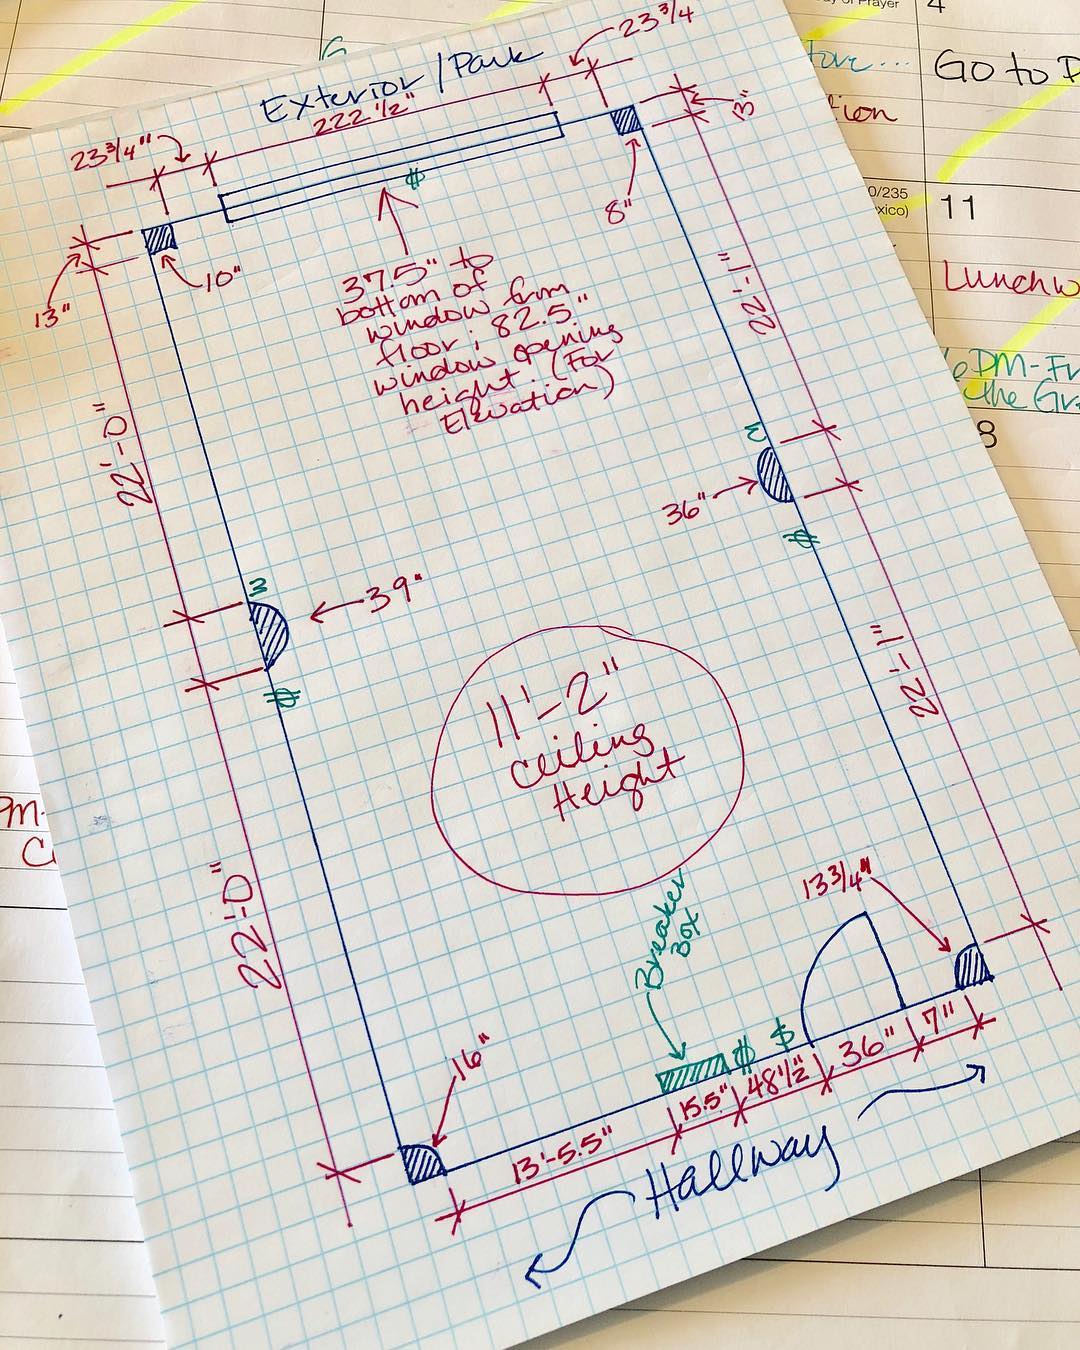 Day of Prayer
4
Go to D
ction
10/235
exico)
11
Lunch w
6PM-Fr
the Gr
8
PM-
Exterior / Park
23 3/4"
222 1/2"
23 3/4
13"
13"
10"
8"
37.5" to
bottom of
window from
floor; 82.5"
window opening
height. (For
Elevation)
22'-0"
22'-1"
36"
39"
11'-2"
Ceiling
Height
22'-1"
22'-0"
13 3/4"
Breaker
Box
16"
13'-5.5"
15.5"
48 1/2"
36"
7"
Hallway